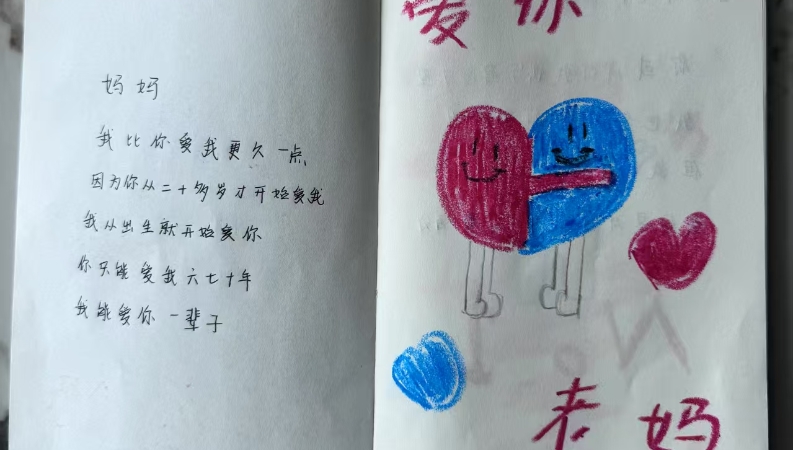 妈妈
我比你爱我更久一点、
因为你从二十多岁才开始爱我
我从出生就开始爱你
你只能爱我六七十年
我能爱你一辈子
爱你
老妈